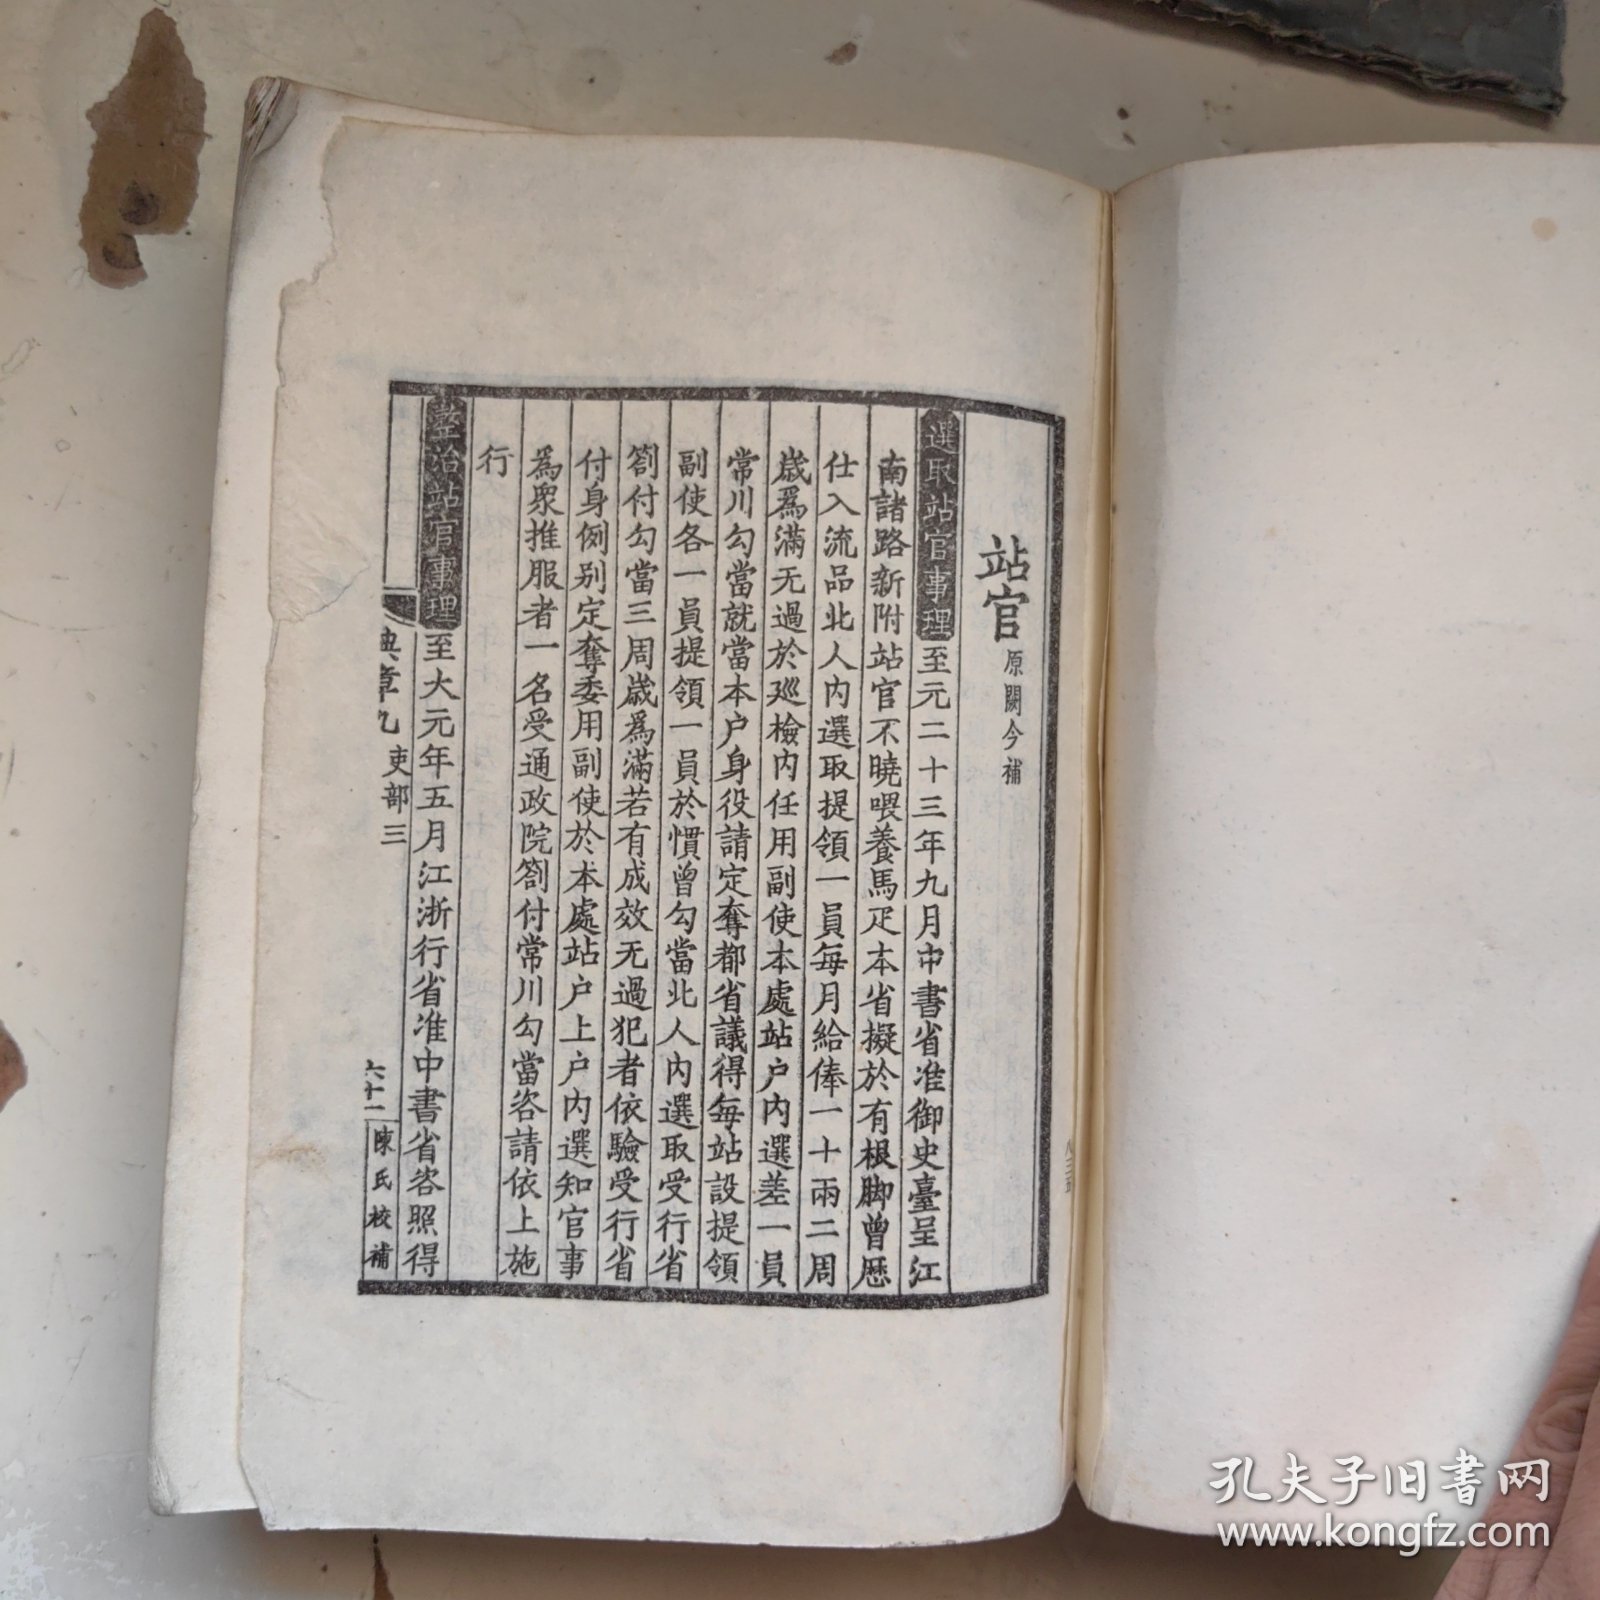 站官 原闕今補
選取站官事理 至元二十三年九月中書省准御史臺呈江
南諸路新附站官不曉喂養馬疋本省擬於有根脚曾歷
仕入流品北人内選取提領一員每月給俸一十兩二周
歲爲滿无過於廵檢内任用副使本處站户内選差一員
常川勾當就當本户身役請定奪都省議得每站設提領
副使各一員提領一員於慣曾勾當北人内選取受行省
劄付勾當三周歲爲滿若有成效无過犯者依驗受行省
付身例别定奪委用副使於本處站户上户内選知官事
爲衆推服者一名受通政院劄付常川勾當咨請依上施
行
整治站官事理 至大元年五月江浙行省准中書省咨照得
典章九 吏部三
六十一 陳氏校補
孔夫子旧书网
www.kongfz.com